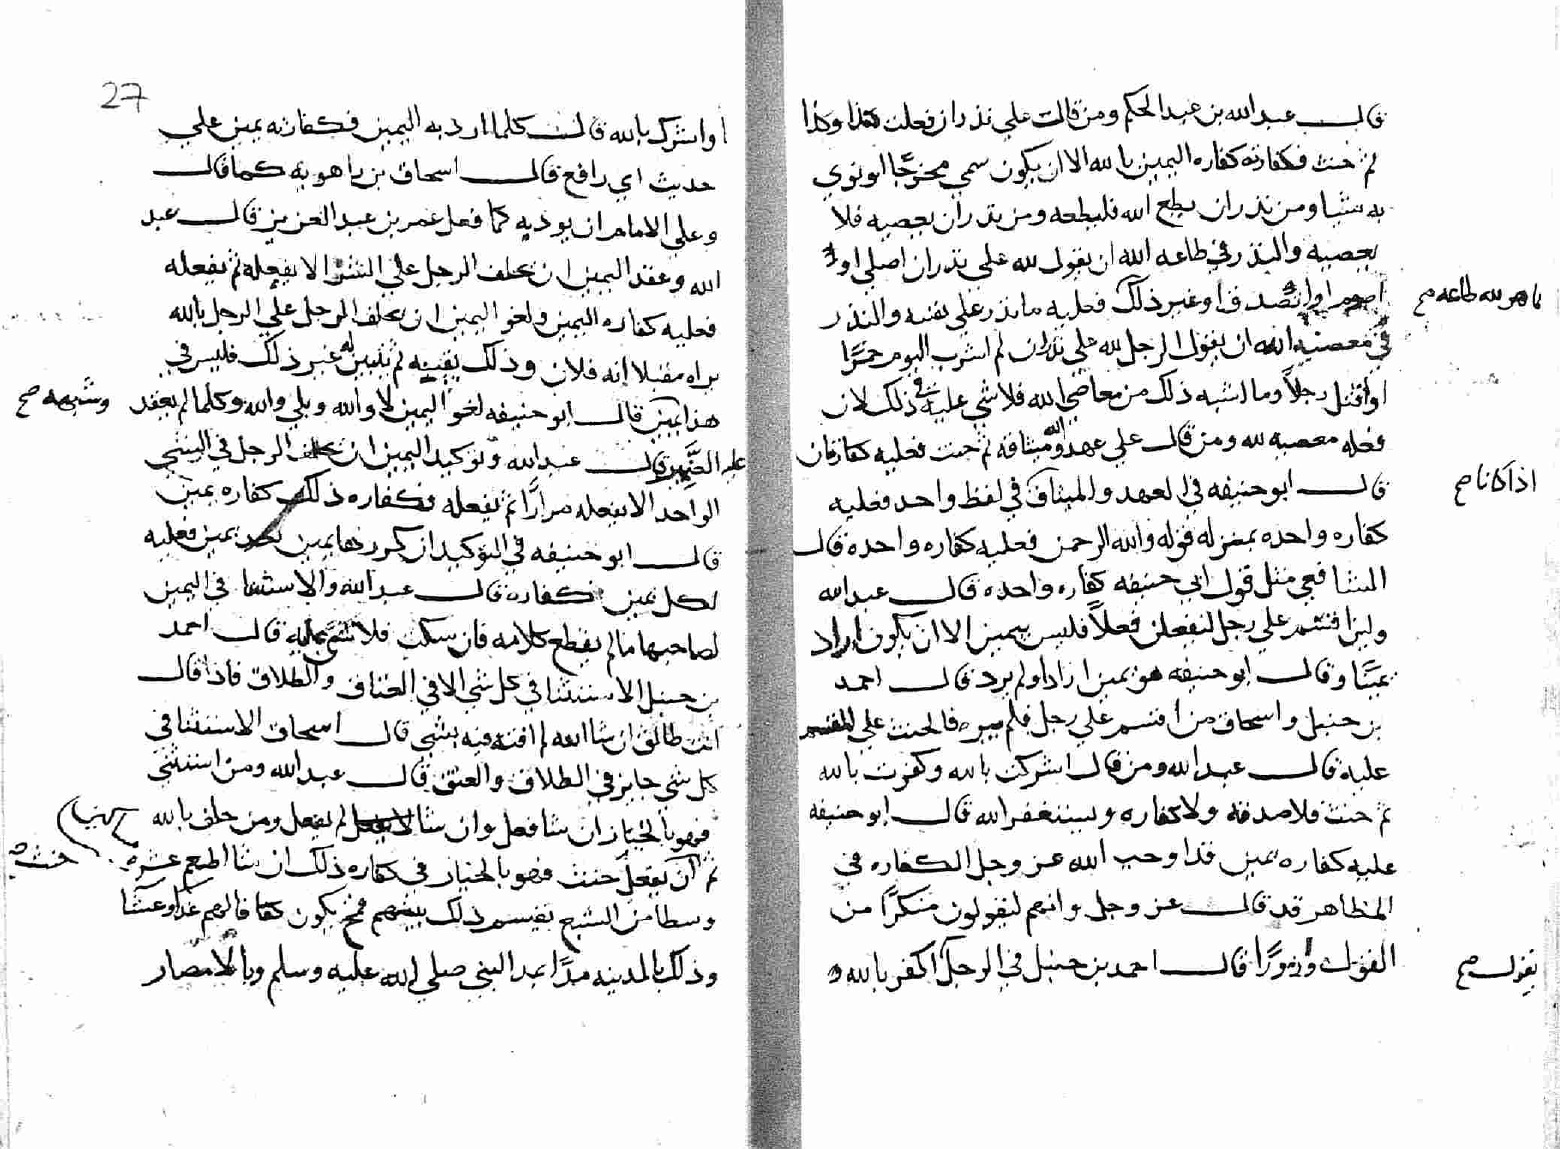 قال عبد الله بن عبد الحكم ومن قال علي نذر ان فعلت كذا وكذا
ثم حنث فكفارته كفاره اليمين بالله الا ان يكون سمى مخرجا او نوى
به شيا ومن نذر ان يطع الله فليطعه ومن نذر ان يعصيه فلا
يعصيه والنذر في طاعه الله ان يقول لله علي نذر ان اصلي او
اصوم او اتصدق او غير ذلك مما هو لله طاعه صح فعليه ما نذر على نفسه والنذر
في معصيه الله ان يقول الرجل لله علي نذر ان لم اشرب اليوم خمرًا
او اقتل رجلاً وما اشبه ذلك من معاصي الله فلا شي عليه في ذلك لان
فعله معصيه لله ومن قال علي عهد الله وميثاقه ثم حنث فعليه كفارتان
قال ابو حنيفه في العهد والميثاق اذا كانا صح في لفظ واحد فعليه
كفاره واحده بمنزله قوله والله الرحمن فعليه كفاره واحده قال
الشافعي مثل قول ابي حنيفه كفاره واحده قال عبد الله
وليزا قسم على رجل لتفعلن فعلاً فليس بيمين الا ان يكون اراد
يمينًا وقال ابو حنيفه هو يمين اراد او لم يرد قال احمد
بن حنبل واسحاق من اقسم على رجل فلم يبره فالحنث على المقسم
عليه قال عبد الله ومن قال اشركت بالله وكفرت بالله
ثم حنث فلا صدقه ولا كفاره ويستغفر الله قال ابو حنيفه
عليه كفاره يمين قد اوجب الله عز وجل الكفاره في
المظاهر قد قال عز وجل وانهم ليقولون منكرًا من
القول وزورًا قال احمد بن حنبل في الرجل يقول صح اكفر بالله
او اشرك بالله قال كلما ارد به اليمين فكفارته يمين على
حديث ابي رافع قال اسحاق بن راهويه كما قال
وعلى الامام ان يوذيه كما فعل عمر بن عبد العزيز قال عبد
الله وعقد اليمين ان يحلف الرجل على الشي الا يفعله ثم يفعله
فعليه كفاره اليمين ولغو اليمين ان يحلف الرجل على الرجل بالله
يراه مقبلا انه فلان وذلك يقينه ثم تبين له غير ذلك فليس في
هذا يمين قال ابو حنيفه لغو اليمين لا والله وبلى والله وشبهه صح وكلما لم يعقد
عليه الضمير قال عبد الله وتوكيد اليمين ان يحلف الرجل في الشي
الواحد الا يفعله مرارًا ثم يفعله فكفاره ذلك كفاره يمين
قال ابو حنيفه في التوكيد ان كررها يمين بعد يمين فعليه
لكل يمين كفاره قال عبد الله والاستثنا في اليمين
لصاحبها ما لم يقطع كلامه فان سكت فلا شي عليه قال احمد
بن حنبل الاستثنا في كل شي الا في العتاق والطلاق فاذا قال
انت طالق ان شا الله لم افته فيه بشي قال اسحاق الاستثنا في
كل شي جايز في الطلاق والعتق قال عبد الله ومن استثنى
فهو بالخيار ان شا فعل وان شا لم يفعل ومن حلف بالله
ثم ان يفعل حنث فهو بالخيار في كفاره ذلك ان شا اطعم عشره
وسطا من الشبع يقسم ذلك بينهم
وذلك بالمدينه مدًا بمد النبي صلى الله عليه وسلم وبالامصار
27